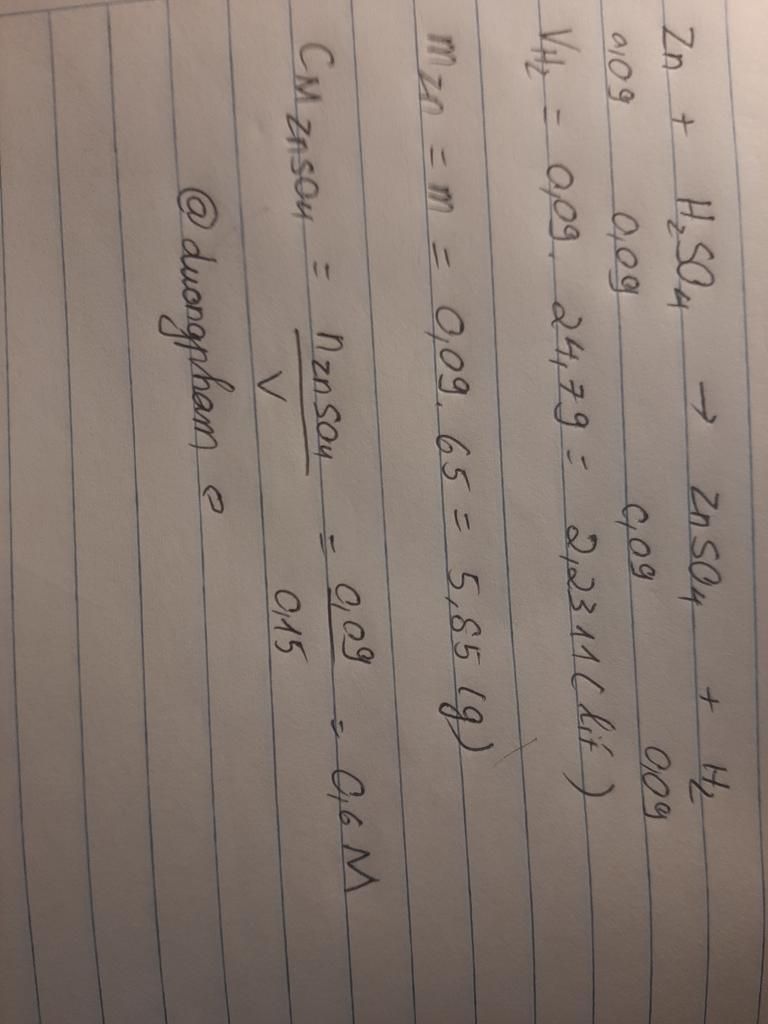 Zn + H₂SO₄ → ZnSO₄ + H₂
0,09 0,09 0,09 0,09
V_H₂ = 0,09. 24,79 = 2,2311 (lít)
m_Zn = m = 0,09. 65 = 5,85 (g)
C_M ZnSO₄ = n_ZnSO₄ / V = 0,09 / 0,15 = 0,6 M
@duongpham